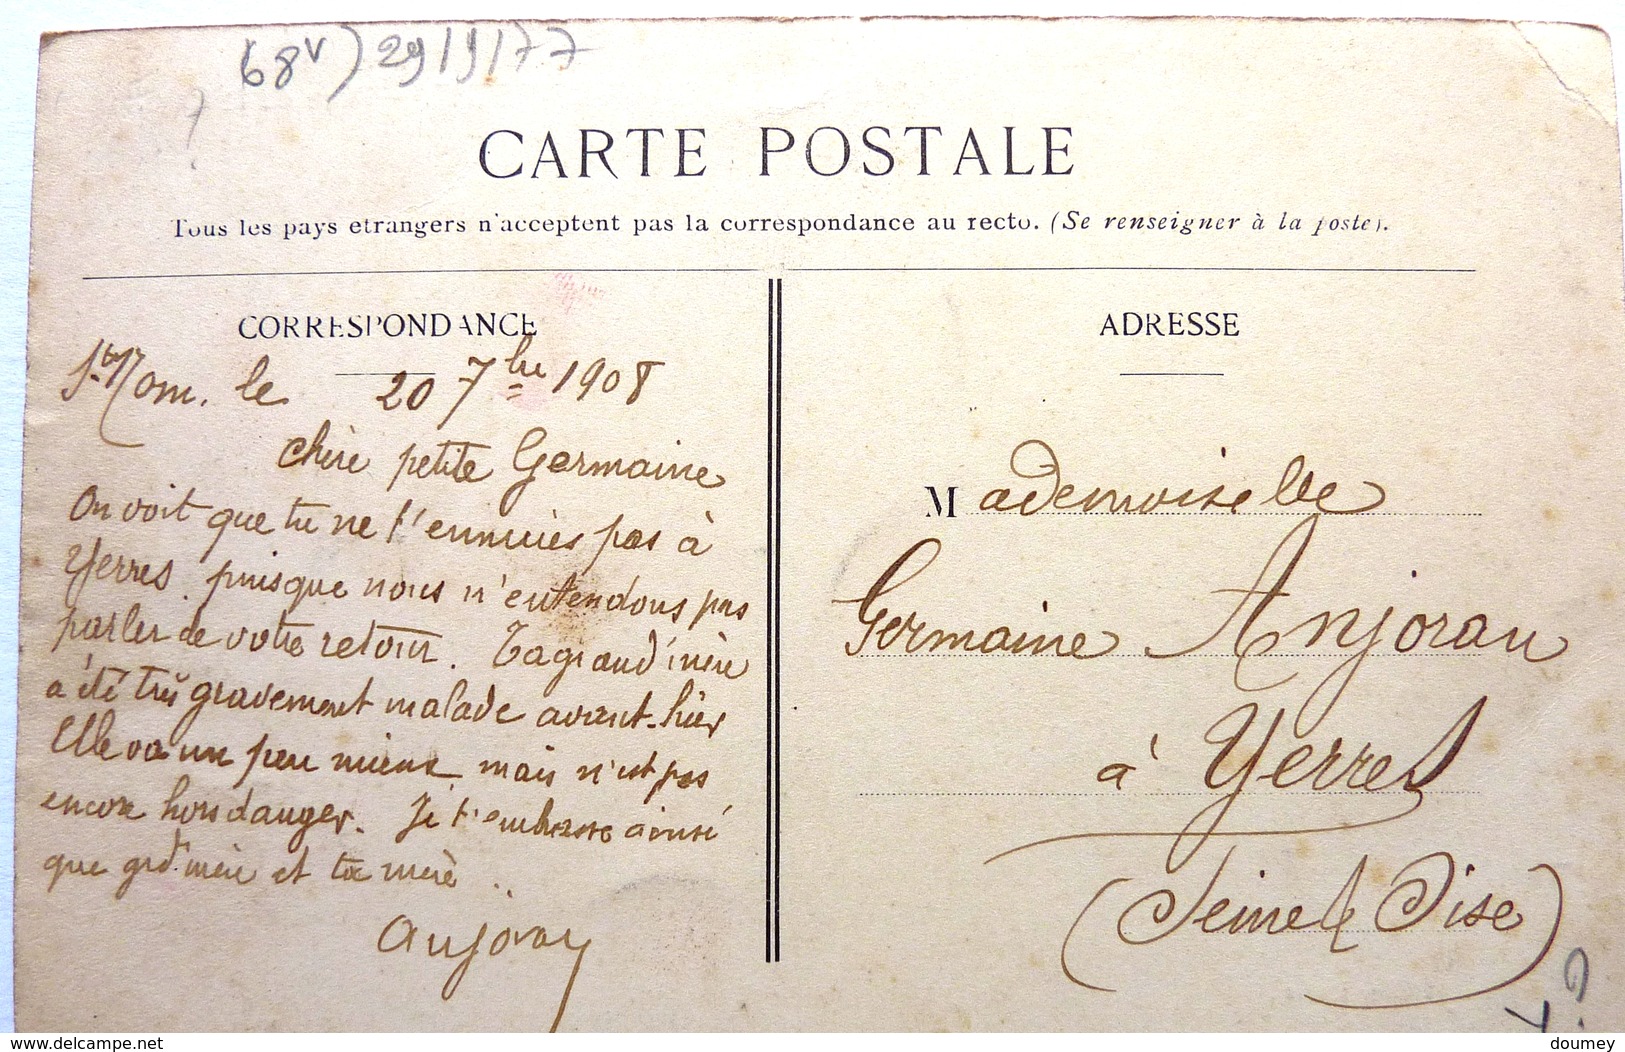 68v) 29/9/77
CARTE POSTALE
Tous les pays etrangers n'acceptent pas la correspondance au recto. (Se renseigner à la poste).
CORRESPONDANCE
St Nom. le 20 7bre 1908
Chère petite Germaine
On voit que tu ne t'ennuies pas à
Yerres. puisque nous n'entendons pas
parler de votre retour. Ta grand'mère
a été très gravement malade avant-hier
Elle va un peu mieux mais n'est pas
encore hors danger. Je t'embrasse ainsi
que grd'mère et ta mère ..
Anjoran
ADRESSE
Mademoiselle
Germaine Anjoran
à Yerres
(Seine & Oise)
delcampe.net
doumey